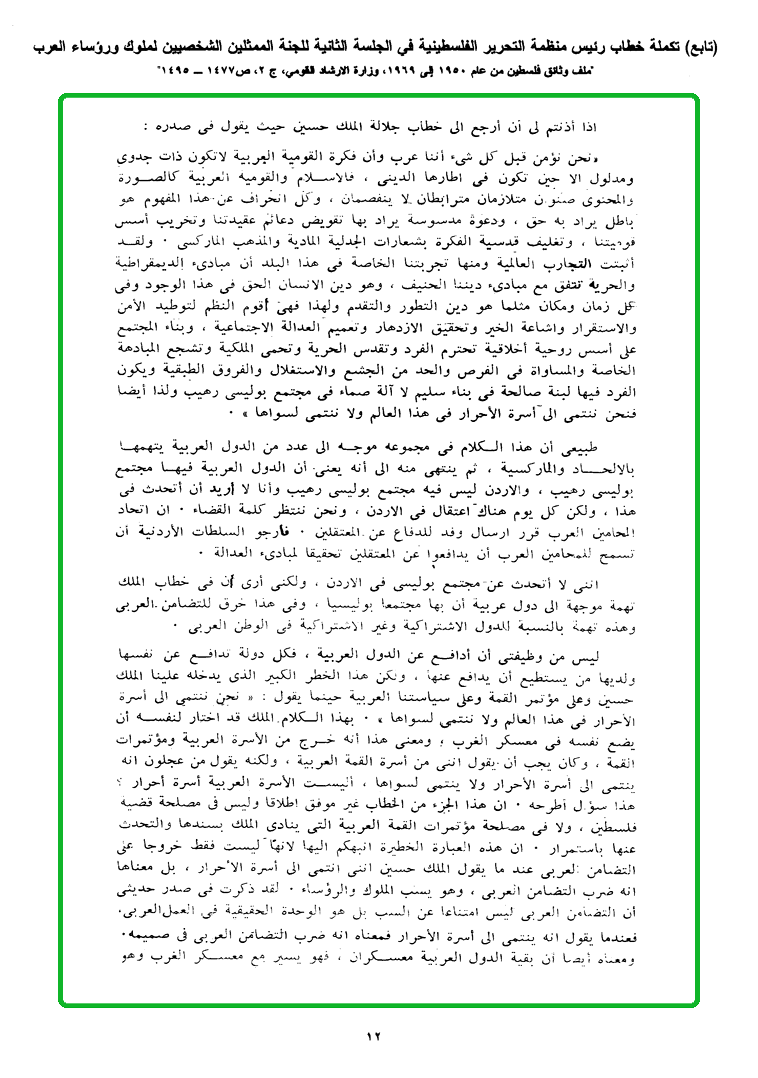 (تابع) تكملة خطاب رئيس منظمة التحرير الفلسطينية في الجلسة الثانية للجنة الممثلين الشخصيين لملوك ورؤساء العرب
"ملف وثائق فلسطين من عام ١٩٥٠ إلى ١٩٦٩، وزارة الارشاد القومي، ج ٢، ص ١٤٧٧ – ١٤٩٥"
اذا أذنتم لى أن أرجع الى خطاب جلالة الملك حسين حيث يقول فى صدره :
« نحن نؤمن قبل كل شىء أننا عرب وأن فكرة القومية العربية لاتكون ذات جدوى
ومدلول الا حين تكون فى اطارها الدينى ، فالاسلام والقومية العربية كالصورة
والمحتوى صنوان متلازمان مترابطان لا ينفصمان ، وكل انحراف عن هذا المفهوم هو
باطل يراد به حق ، ودعوة مدسوسة يراد بها تقويض دعائم عقيدتنا وتخريب أسس
قوميتنا ، وتغليف قدسية الفكرة بشعارات الجدلية المادية والمذهب الماركسى ٠ ولقد
أثبتت التجارب العالمية ومنها تجربتنا الخاصة فى هذا البلد أن مبادىء الديمقراطية
والحرية تتفق مع مبادىء ديننا الحنيف ، وهو دين الانسان الحق فى هذا الوجود وفى
كل زمان ومكان مثلما هو دين التطور والتقدم ولهذا فهى أقوم النظم لتوطيد الأمن
والاستقرار واشاعة الخير وتحقيق الازدهار وتعميم العدالة الاجتماعية ، وبناء المجتمع
على أسس روحية أخلاقية تحترم الفرد وتقدس الحرية وتحمى الملكية وتشجع المبادهة
الخاصة والمساواة فى الفرص والحد من الجشع والاستغلال والفروق الطبقية ويكون
الفرد فيها لبنة صالحة فى بناء سليم لا آلة صماء فى مجتمع بوليسى رهيب ولذا أيضا
فنحن ننتمى الى أسرة الأحرار فى هذا العالم ولا ننتمى لسواها » ٠
طبيعى أن هذا الكلام فى مجموعه موجه الى عدد من الدول العربية يتهمها
بالالحاد والماركسية ، ثم ينتهى منه الى أنه يعنى أن الدول العربية فيها مجتمع
بوليسى رهيب ، والاردن ليس فيه مجتمع بوليسى رهيب وأنا لا أريد أن أتحدث فى
هذا ، ولكن كل يوم هناك اعتقال فى الاردن ، ونحن ننتظر كلمة القضاء ٠ ان اتحاد
المحامين العرب قرر ارسال وفد للدفاع عن المعتقلين ٠ فأرجو السلطات الأردنية أن
تسمح للمحامين العرب أن يدافعوا عن المعتقلين تحقيقا لمبادىء العدالة ٠
اننى لا أتحدث عن مجتمع بوليسى فى الاردن ، ولكنى أرى أن فى خطاب الملك
تهمة موجهة الى دول عربية أن بها مجتمعا بوليسيا ، وفى هذا خرق للتضامن العربى
وهذه تهمة بالنسبة للدول الاشتراكية وغير الاشتراكية فى الوطن العربى ٠
ليس من وظيفتى أن أدافع عن الدول العربية ، فكل دولة تدافع عن نفسها
ولديها من يستطيع أن يدافع عنها ، ولكن هذا الخطر الكبير الذى يدخله علينا الملك
حسين وعلى مؤتمر القمة وعلى سياستنا العربية حينما يقول : « نحن ننتمى الى أسرة
الأحرار فى هذا العالم ولا ننتمى لسواها » ٠ بهذا الكلام الملك قد اختار لنفسه أن
يضع نفسه فى معسكر الغرب ، ومعنى هذا أنه خرج من الأسرة العربية ومؤتمرات
القمة ، وكان يجب أن يقول اننى من أسرة القمة العربية ، ولكنه يقول من عجلون انه
ينتمى الى أسرة الأحرار ولا ينتمى لسواها ، أليست الأسرة العربية أسرة أحرار ؟
هذا سؤال أطرحه ٠ ان هذا الجزء من الخطاب غير موفق اطلاقا وليس فى مصلحة قضية
فلسطين ، ولا فى مصلحة مؤتمرات القمة العربية التى ينادى الملك بسندها والتحدث
عنها باستمرار ٠ ان هذه العبارة الخطيرة انبهكم اليها لانها ليست فقط خروجا على
التضامن العربى عند ما يقول الملك حسين اننى انتمى الى أسرة الأحرار ، بل معناها
انه ضرب التضامن العربى ، وهو يسب الملوك والرؤساء ٠ لقد ذكرت فى صدر حديثى
أن التضامن العربى ليس امتناعا عن السب بل هو الوحدة الحقيقية فى العمل العربى٠
فعندما يقول انه ينتمى الى أسرة الأحرار فمعناه انه ضرب التضامن العربى فى صميمه٠
ومعناه أيضا أن بقية الدول العربية معسكران ، فهو يسير مع معسكر الغرب وهو
١٢